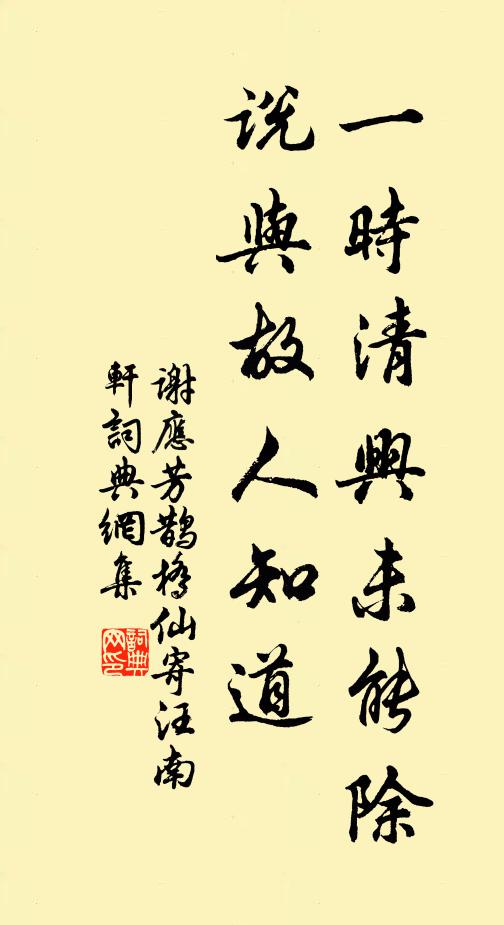 一時清興未能除
說與故人知道
謝應芳鵲橋仙寄汪南
軒詞典網集
詞典
网印